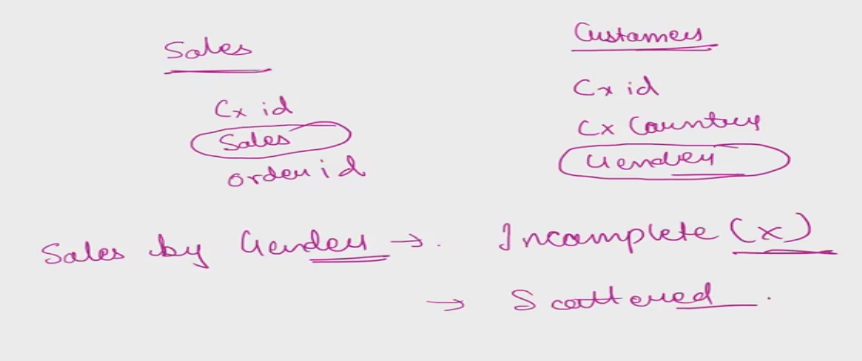 Sales
Cx id
Sales
order id
Customers
Cx id
Cx Country
Gender
Sales by Gender → . Incomplete (x)
→ Scattered .